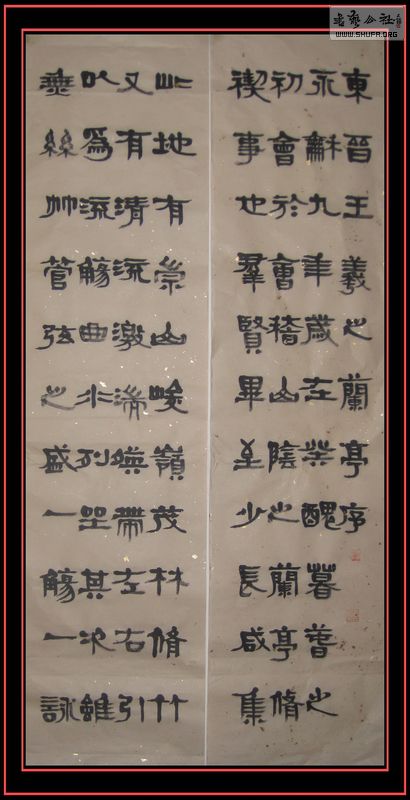 東晉王羲之蘭亭序
永龢九年歲在癸醜暮春之
初會於會稽山陰之蘭亭脩
禊事也羣賢畢至少長咸集
此地有崇山峻嶺茂林脩竹
又有清流激湍映帶左右引
以為流觴曲水列坐其次雖
無絲竹管弦之盛一觴一詠
書藝公社
WWW.SHUFA.ORG